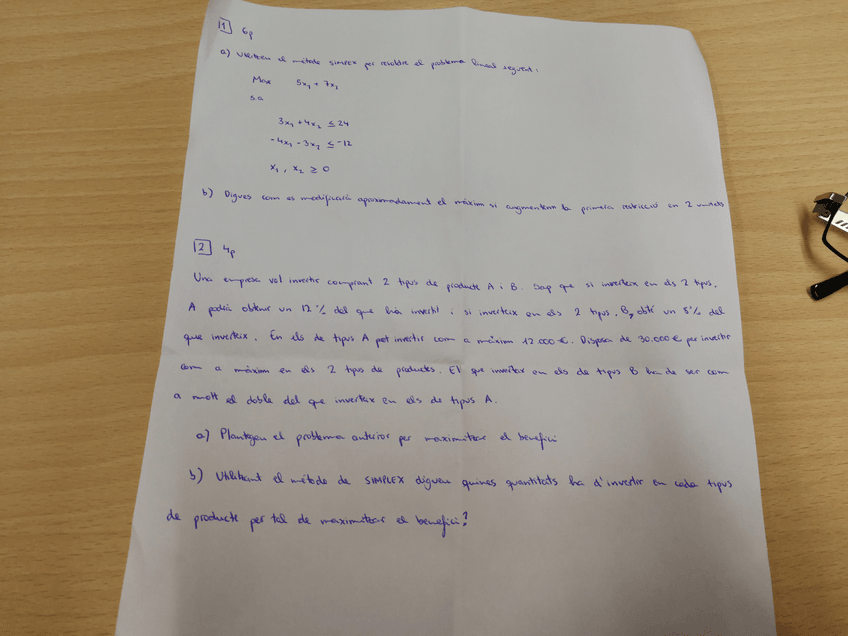 1 6p
a) Utilitzeu el mètode simplex per resoldre el problema lineal següent:
Max 5x₁ + 7x₂
s.a
3x₁ + 4x₂ ≤ 24
-4x₁ - 3x₂ ≤ -12
x₁, x₂ ≥ 0
b) Digues com es modificarà aproximadament el màxim si augmentem la primera restricció en 2 unitats
2 4p
Una empresa vol invertir comprant 2 tipus de producte A i B. Sap que si inverteix en els 2 tipus.
A podrà obtenir un 12% del que hia invertit i si inverteix en els 2 tipus, B, obté un 8% del
que inverteix. En els de tipus A pot invertir com a màxim 12 000 €. Disposa de 30 000 € per invertir
com a màxim en els 2 tipus de productes. El que inverteix en els de tipus B ha de ser com
a molt el doble del que inverteix en els de tipus A.
a) Plantegeu el problema anterior per maximitzar el benefici
b) Utilitzant el mètode de SIMPLEX digueu quines quantitats ha d'invertir en cada tipus
de producte per tal de maximitzar el benefici?